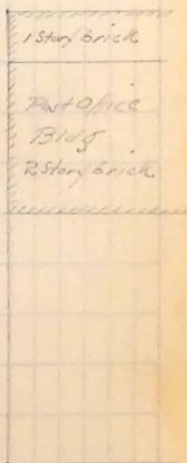 1 Story Brick
Post Office
Bldg
2 Story Brick